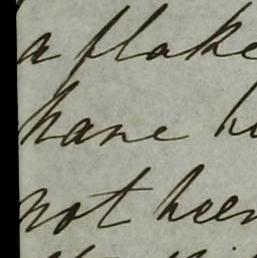 a flake
have
not been